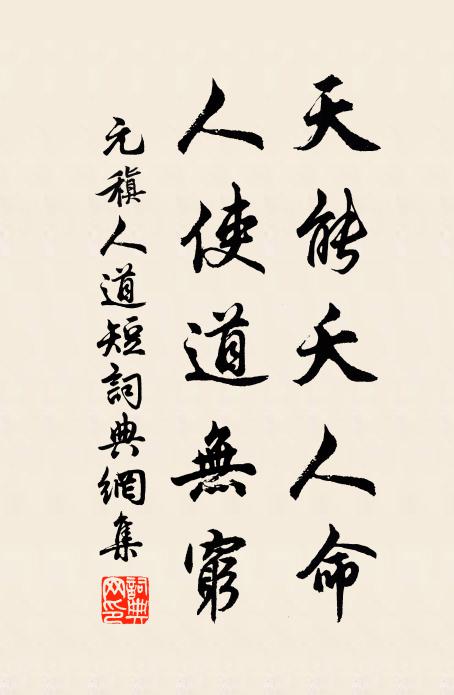 天能夭人命
人使道無窮
元稹人道短詞典網集
詞典網印